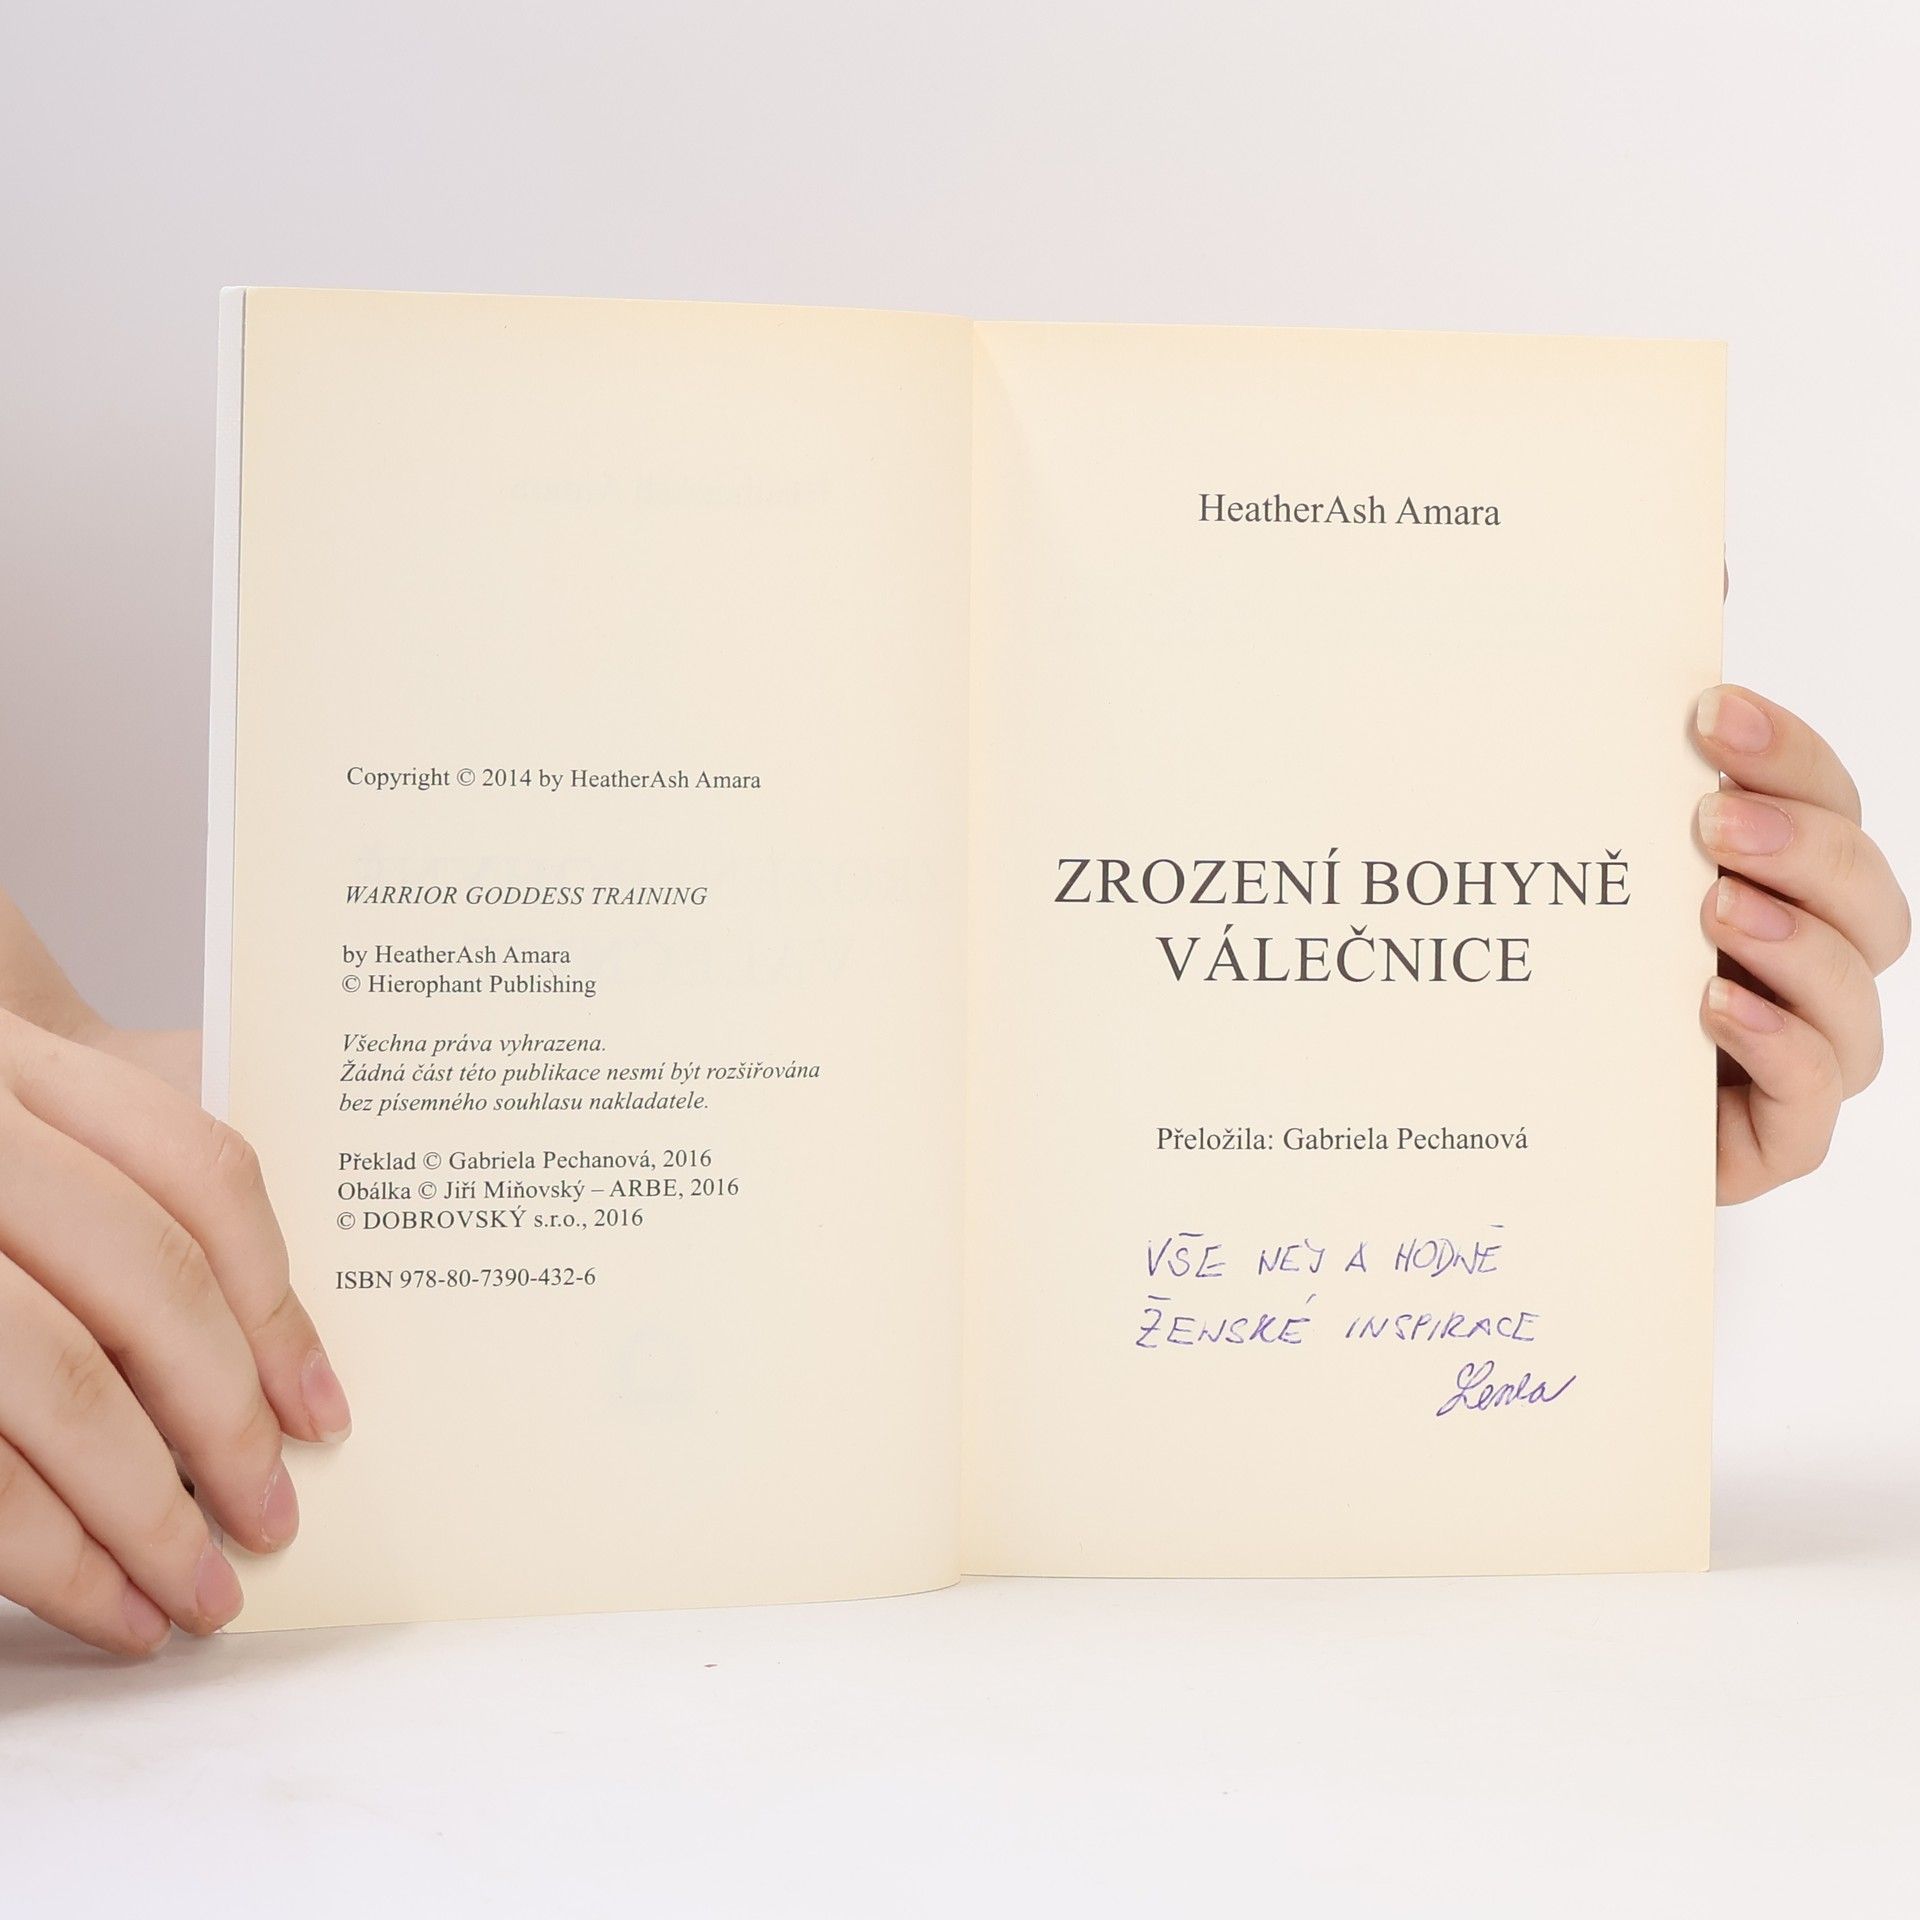 Copyright © 2014 by HeatherAsh Amara
WARRIOR GODDESS TRAINING
by HeatherAsh Amara
© Hierophant Publishing
Všechna práva vyhrazena.
Žádná část této publikace nesmí být rozšiřována
bez písemného souhlasu nakladatele.
Překlad © Gabriela Pechanová, 2016
Obálka © Jiří Miňovský – ARBE, 2016
© DOBROVSKÝ s.r.o., 2016
ISBN 978-80-7390-432-6
HeatherAsh Amara
ZROZENÍ BOHYNĚ
VÁLEČNICE
Přeložila: Gabriela Pechanová
VŠE NEJ A HODNĚ
ŽENSKÉ INSPIRACE
Lenka